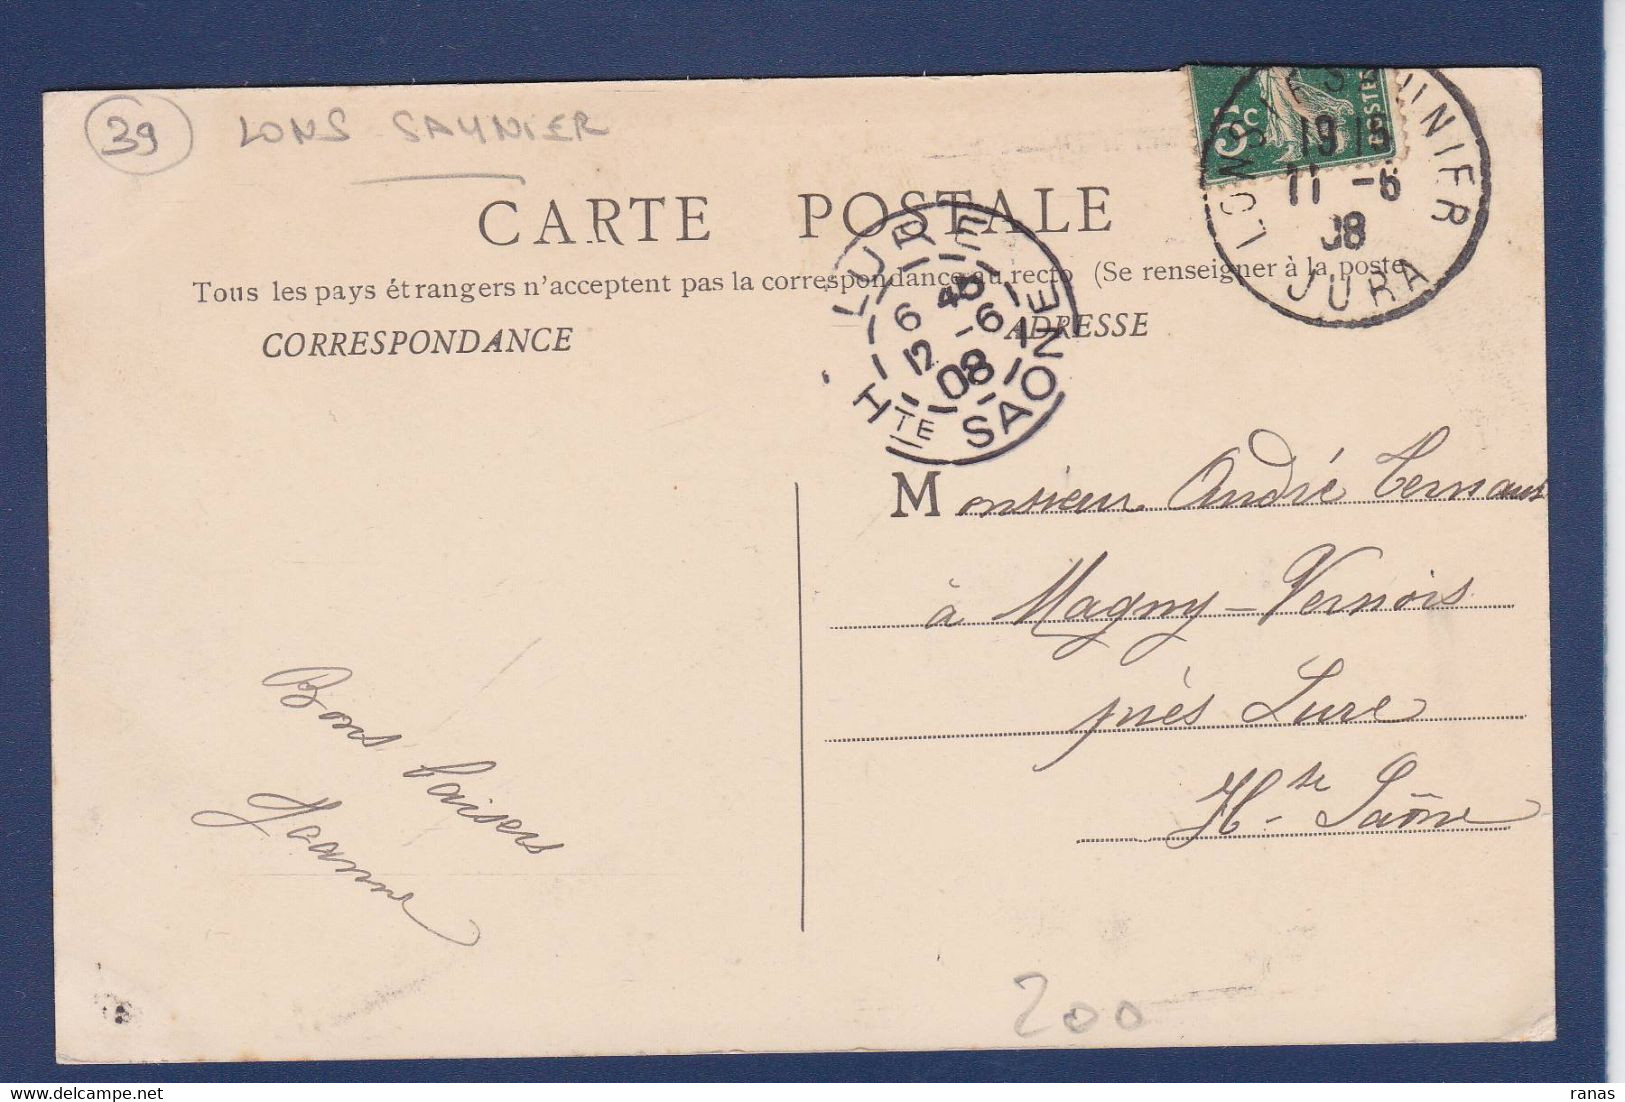 39 LONS SAUNIER
5c POSTES
LONS-LE-SAUNIER
19 15
11 -6
08
JURA
CARTE POSTALE
Tous les pays étrangers n'acceptent pas la correspondance au recto (Se renseigner à la poste
CORRESPONDANCE
ADRESSE
LURE
6 45
12 -6
08
HTE SAONE
Monsieur André Ternaux
à Magny-Vernois
près Lure
Hte Saône
Bons baisers
Jeanne
200
ranas